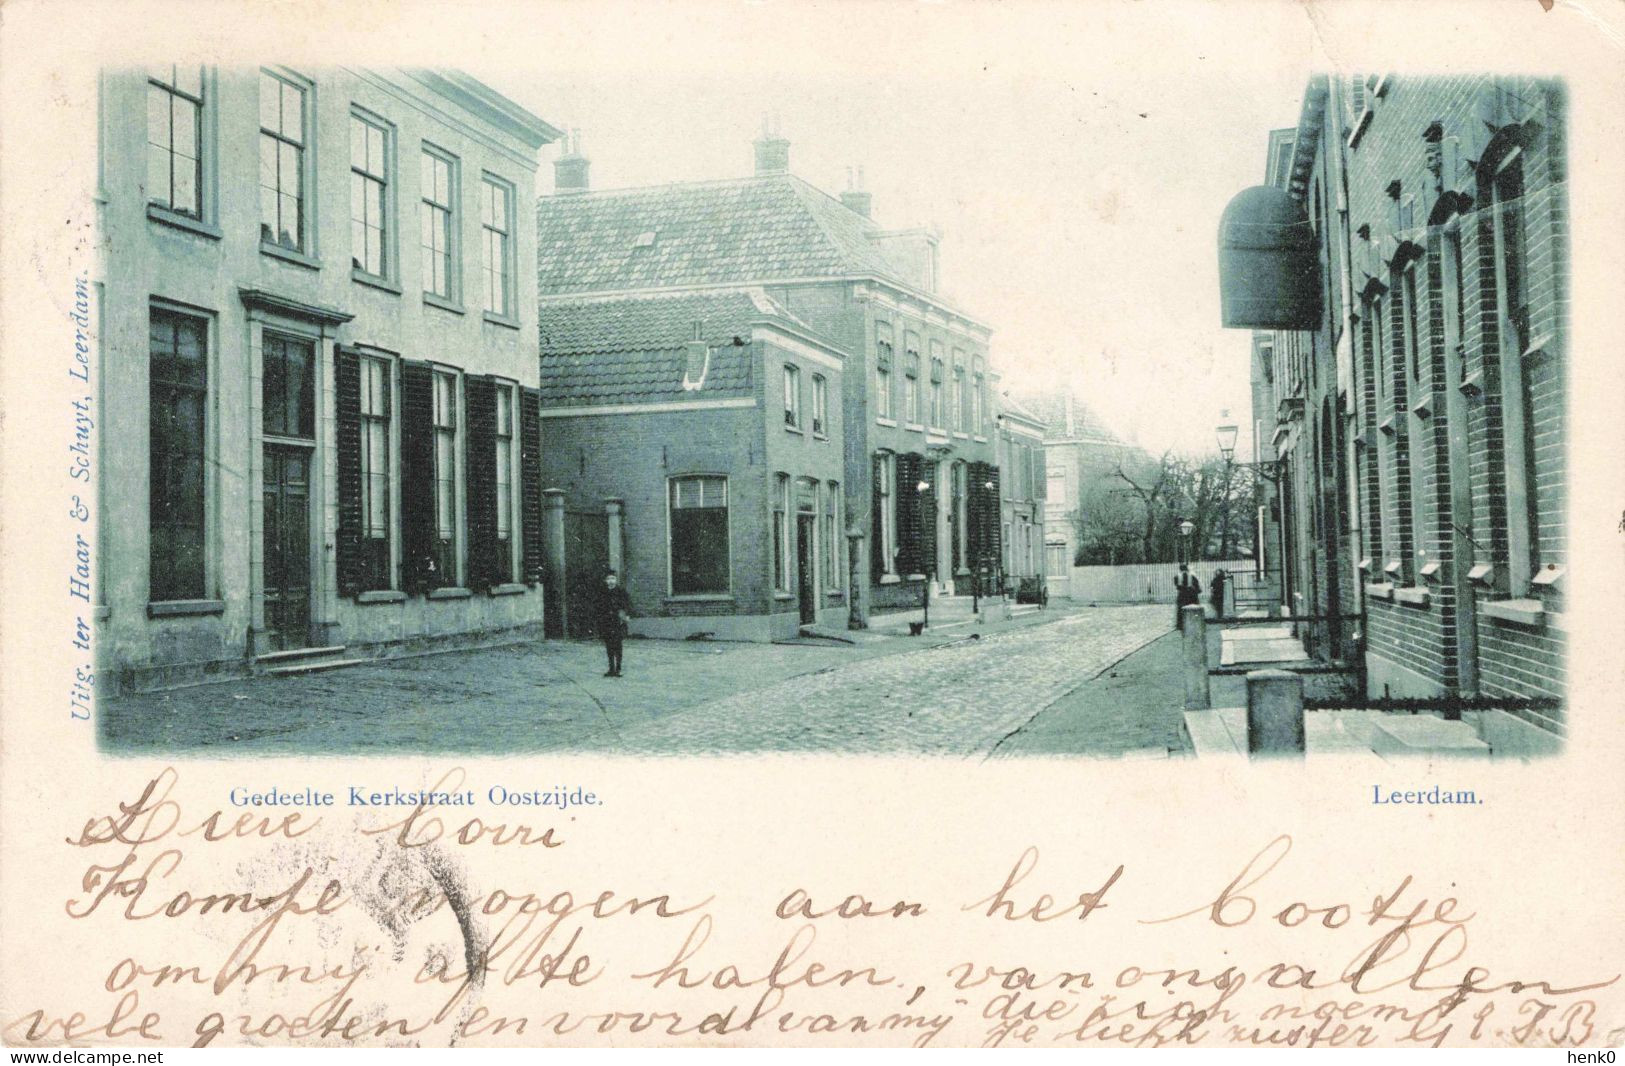 Uitg. ter Haar & Schuyt, Leerdam.
Gedeelte Kerkstraat Oostzijde.
Leerdam.
Lieve Corri
Kompe morgen aan het Bootje
om mij af te halen, van ons allen
vele groeten en vooral van mij die zich noemt
je liefh zuster G E.T.B.
henk0